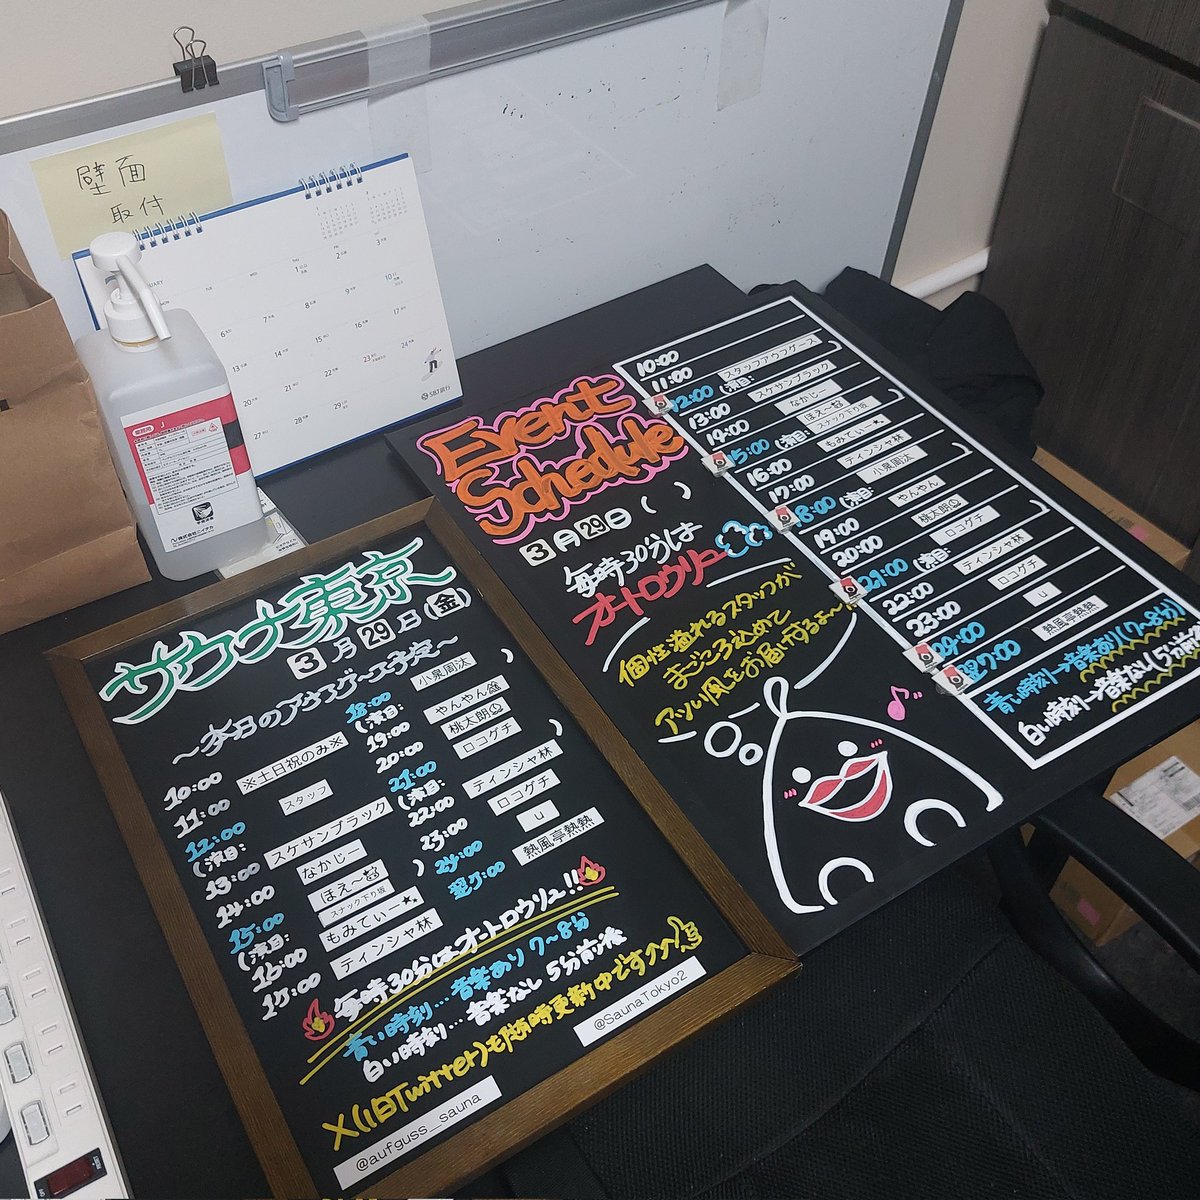 壁面
取付
SBI新生銀行
Event
Schedule
3月29日( )
毎時30分は
オートロウリュ
個性溢れるスタッフが
まごころ込めて
アツい風をお届けするよ〜
10:00
11:00 スタッフアウフグース
12:00 (演目: )
13:00 スケサンブラック
14:00 なかじー
ほえ〜
15:00 (演目: スナック下り坂 )
16:00 もみてぃー
17:00 ティンシャ林
18:00 (演目: ) 小泉周汰
19:00 やんやん
20:00 桃太朗
21:00 (演目: ) ロコグチ
22:00 ティンシャ林
23:00 ロコグチ
24:00 u
翌7:00 熱風亭熱熱
青い時刻→音楽あり(7〜8分)
白い時刻→音楽なし(5分前後)
サウナ東京
3月29日(金)
〜本日のアウフグース予定〜
10:00 ※土日祝のみ※
11:00 スタッフ
12:00
(演目: )
13:00 スケサンブラック
14:00 なかじー
15:00 ほえ〜
(演目: スナック下り坂 )
16:00 もみてぃー
17:00 ティンシャ林
18:00 小泉周汰
(演目: )
19:00 やんやん
20:00 桃太朗
21:00 ロコグチ
(演目: )
22:00 ティンシャ林
23:00 ロコグチ
24:00 u
翌7:00 熱風亭熱熱
毎時30分はオートロウリュ!!
青い時刻…音楽あり 7〜8分
白い時刻…音楽なし 5分前後
X(旧Twitter)も随時更新中です
@aufguss_sauna
@SaunaTokyo2